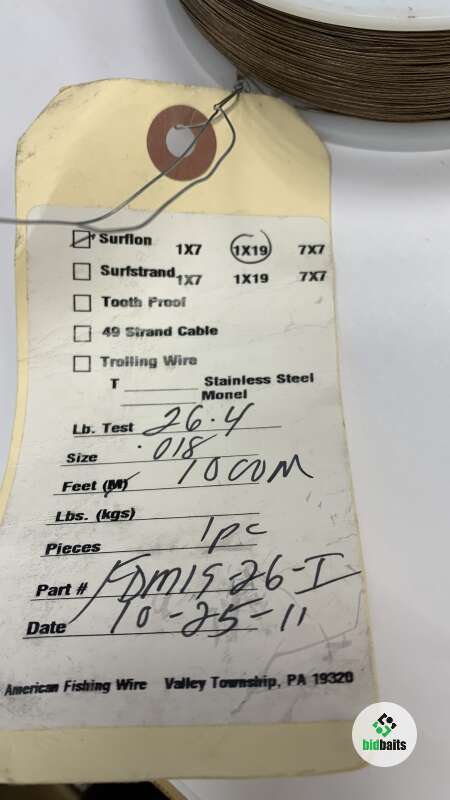 Surflon 1X7 1X19 7X7
Surfstrand 1X7 1X19 7X7
Tooth Proof
49 Strand Cable
Trolling Wire
T Stainless Steel
Monel
Lb. Test 26.4
Size .018
Feet (M) 1000M
Lbs. (kgs)
Pieces 1pc
Part # DM19-26-I
Date 10-25-11
American Fishing Wire Valley Township, PA 19320
bidbaits